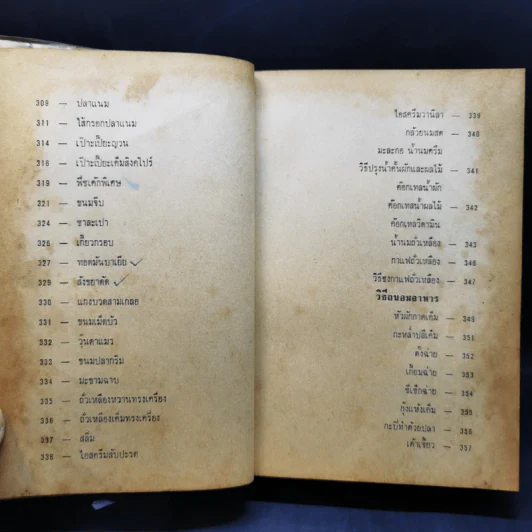 309 — ปลาแนม
311 — ไส้กรอกปลาแนม
314 — เปาะเปี๊ยะญวน
316 — เปาะเปี๊ยะเค็มสิงคโปร์
319 — พืชเค้กพิเศษ
321 — ขนมจีบ
324 — ซาละเปา
326 — เกี๊ยวกรอบ
327 — ทอดมันบาเยีย ✓
329 — สังขยาตัด ✓
330 — แกงบวดสามเกลอ
331 — ขนมเม็ดบัว
332 — วุ้นตาแมว
333 — ขนมปลากริม
334 — มะขามฉาบ
335 — ถั่วเหลืองหวานทรงเครื่อง
336 — ถั่วเหลืองเค็มทรงเครื่อง
337 — สลิ่ม
338 — ไอสครีมสับปะรด
ไอสครีมวานิลา — 339
กล้วยนมสด — 340
มะละกอ น้ำนมครีม
วิธีปรุงน้ำคั้นผักและผลไม้ — 341
ค๊อกเทลน้ำผัก
ค๊อกเทลน้ำผลไม้ — 342
ค๊อกเทลวิตามิน
น้ำนมถั่วเหลือง — 343
กาแฟถั่วเหลือง — 346
วิธีชงกาแฟถั่วเหลือง — 347
วิธีถนอมอาหาร
หัวผักกาดเค็ม — 348
กะหล่ำปลีเค็ม — 351
ตั้งฉ่าย — 352
เกี้ยมฉ่าย — 353
ซีเซ็กฉ่าย — 354
กุ้งแห้งเค็ม — 355
กะปิทำด้วยปลา — 356
เต้าเจี้ยว — 357